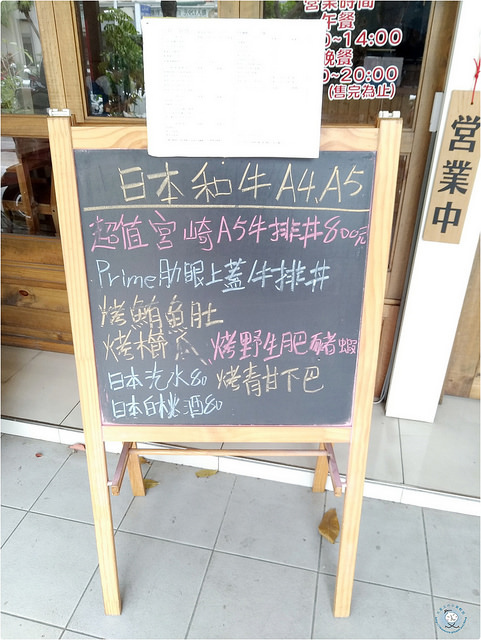 營業時間
午餐
0~14:00
晚餐
0~20:00
(售完為止)
營業中
日本和牛A4,A5
超值宮崎A5牛排丼800元
Prime肋眼上蓋牛排丼
烤鮪魚肚
烤櫛瓜、烤野生肥豬蝦
日本汽水80 烤青甘下巴
日本白桃酒80